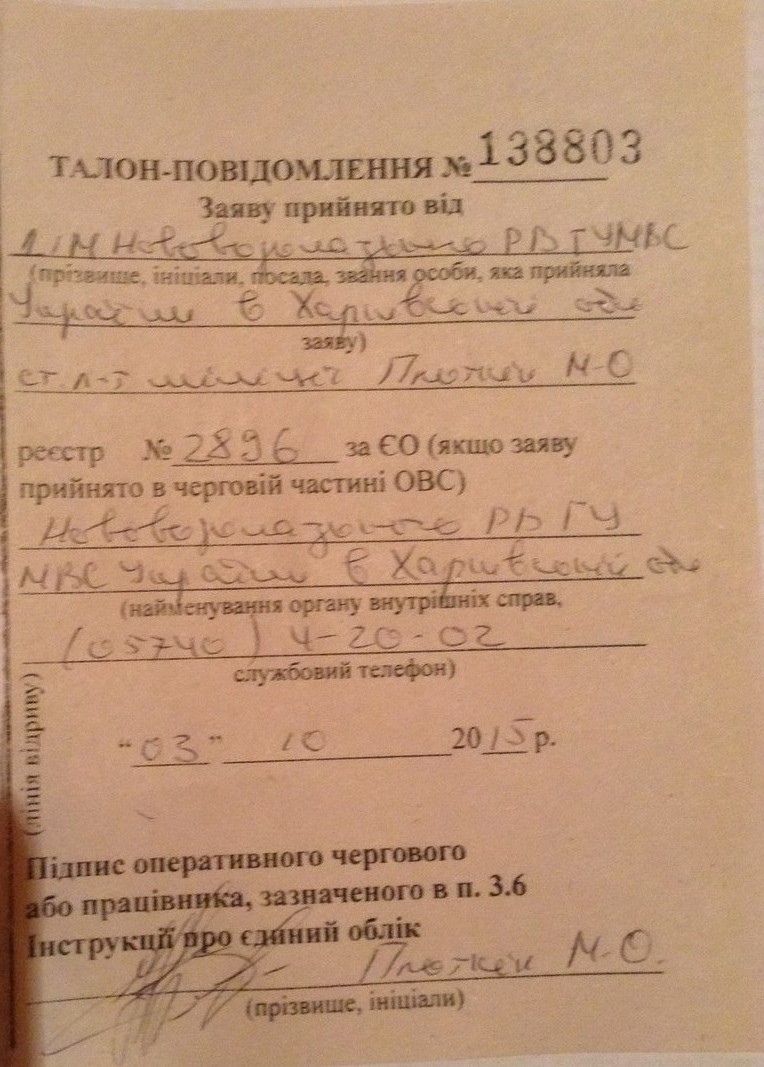 ТАЛОН-ПОВІДОМЛЕННЯ № 138803
Заяву прийнято від
Нововодолазького РВ ГУМВС
(прізвище, ініціали, посада, звання особи, яка прийняла
України в Харківській обл
заяву)
ст. л-т міліції Плоткін М-О
реєстр № 2896 за ЄО (якщо заяву
прийнято в черговій частині ОВС)
Нововодолазького РВ ГУ
МВС України в Харківській обл
(найменування органу внутрішніх справ,
(05740) 4-20-02
службовий телефон)
(лінія відриву)
“03” 10 2015 р.
Підпис оперативного чергового
або працівника, зазначеного в п. 3.6
Інструкції про єдиний облік
Плоткін М-О.
(прізвище, ініціали)